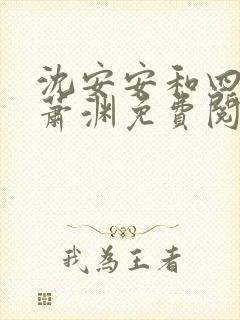 沈安安和四
萧渊免费阅
我為王者